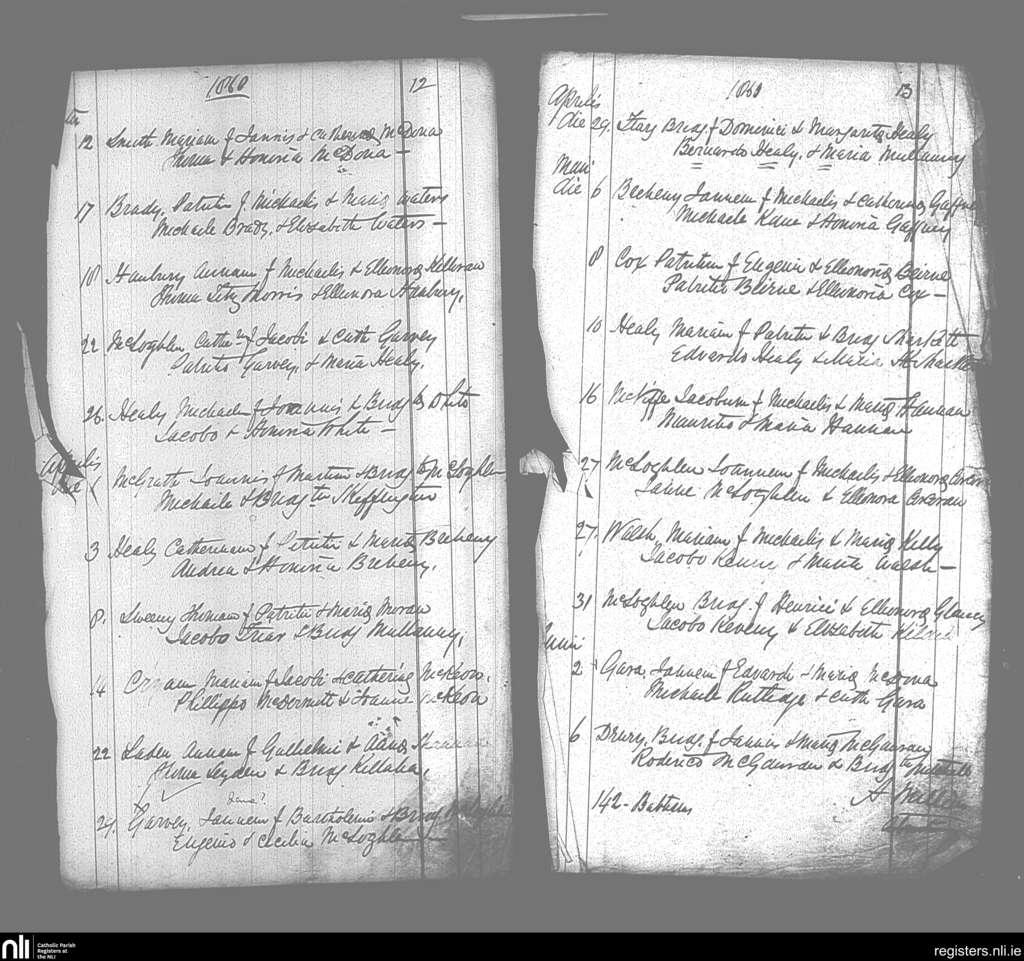 1860 12
12 Smith Mariam f Jannis & Catherinæ McDona
Thoma & Honoria McDona –
17 Brady, Patritm f Michaelis & Mariæ Waters
Michaele Brady, & Elizabeth Waters –
18 Hanbury Annam f Michaelis & Elleonoræ Killoran
Thoma Fitz Morris & Ellenora Hanbury,
22 McLoghlen Cath f Jacobi & Cath Garvey
Patrito Garvey, & Maria Healy,
26 Healy Michaelem f Joannis & Brid White
Jacobo & Honoria White –
Aprilis
die 1 McGrath Joannis f Martini & Brid McLoghlen
Michaele & Bridg Skeffington
3 Healy Catherinam f Petritii & Mariæ Breheny
Andrea & Honoria Breheny,
8. Sweeny Thomam f Patritii & Mariæ Moran
Jacobo & Bridg Mullaney,
14 Mariam f Jacobi & Catherinæ McKeon,
Phillippo McDermott & McKeon
22 Laden Annam f Gulhelmi & Annæ
Thoma Leyden & Bridg Killalea,
29. Garvey, Jannem f Bartholemei & Bridg
Eugenio & Cecilia McLoghlen –
1860 13
Aprilis
die 29. Bridg f Dominici & Margaritæ Healy
Bernardo Healy, & Maria Mullaney
Maii
die 6 Breheny Jannem f Michaelis & Catherinæ Gaffney
Michaele Kane & Honoria Gaffney
8 Cox Patritum f Eugenii & Elleonoriæ Beirne
Patritio Beirne & Ellenoria Cox –
10 Healy Mariam f Patritii & Bridg
Edvardo Healy &
16 Jacobum f Michaelis & Mariæ Hannan
Mauritio & Maria Hannan
27 McLoghlen Joannem f Michaelis & Ellenoræ Corcoran
McLoghlen & Ellenora Corcoran
27. Walsh, Mariam f Michaelis & Mariæ Kelly
Jacobo & Maria Walsh –
31 McLoghlen Bridg. f Henrici & Elleonoræ Glancy
Jacobo Keveny & Elizabeth
Junii
2 Gara, Jannem f Edvardi & Mariæ McDona
Michaele Rutledge & Cath Gara
6 Drury, Bridg. f Jannis & Mariæ McGarran
Roderico McGarran & Bridg
142 - Babtisms
nli Catholic Parish
Registers at
the NLI
registers.nli.ie